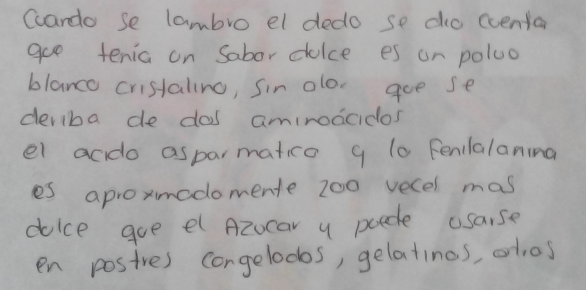 Cuando se lambio el dedo se dio cuenta
que tenia un sabor dulce es un polvo
blanco cristalino, sin olor que se
deriba de dos aminoácidos
el acido asparmatico y la fenilalanina
es aproximadamente 200 veces mas
dulce que el Azucar y puede usarse
en postres congelados, gelatinas, otros